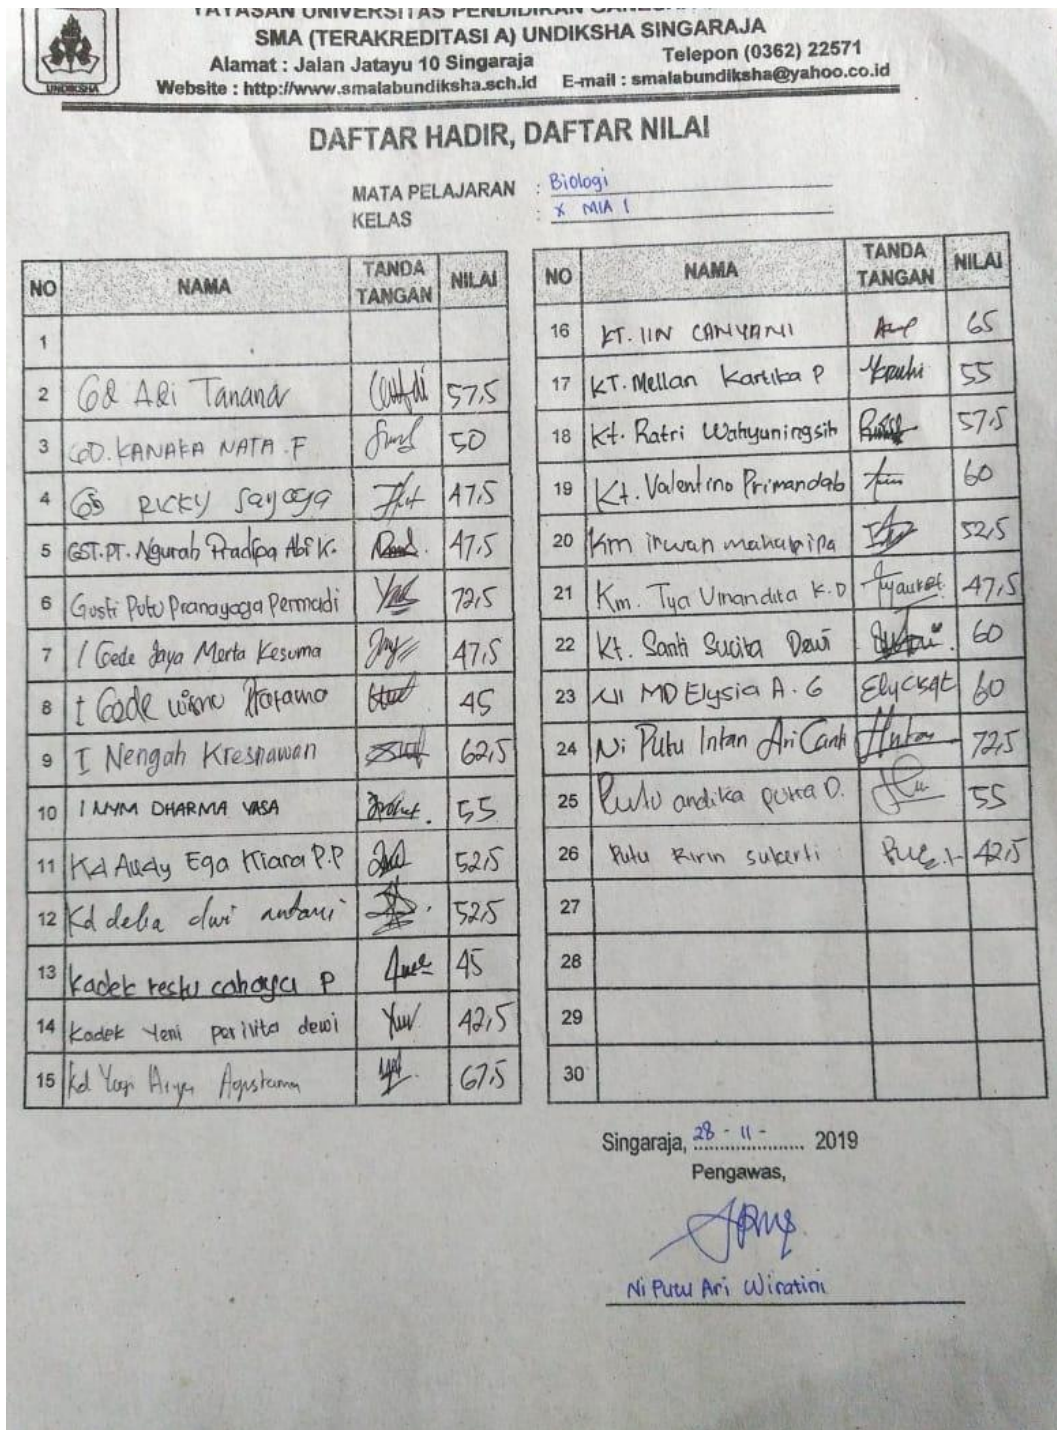 YAYASAN UNIVERSITAS PENDIDIKAN
SMA (TERAKREDITASI A) UNDIKSHA SINGARAJA
Alamat : Jalan Jatayu 10 Singaraja Telepon (0362) 22571
Website : http://www.smalabundiksha.sch.id E-mail : smalabundiksha@yahoo.co.id
UNDIKSHA
DAFTAR HADIR, DAFTAR NILAI
MATA PELAJARAN : Biologi
KELAS : X MIA 1
NO NAMA TANDA TANGAN NILAI
1
2 Gd Adi Tanana 57,5
3 GD. KANAKA NATA .F 50
4 Gd RICKY Sayoga 47,5
5 GST.PT. Ngurah Pradipa Abi K. 47,5
6 Gusti Putu Pranayoga Permadi 72,5
7 I Gede Jaya Merta Kesuma 47,5
8 I Gede wisnu 45
9 I Nengah Kresnawan 62,5
10 I NYM DHARMA YASA 55
11 Kd Audy Ega Kiara P.P 52,5
12 Kd delia dwi antari 52,5
13 Kadek restu cahaya P 45
14 Kadek Yeni perilita dewi 42,5
15 Kd Yogi Arya Agustama 67,5
NO NAMA TANDA TANGAN NILAI
16 KT. IIN CANYANI 65
17 KT. Mellan Kartika P 55
18 Kt. Ratri Wahyuningsih 57,5
19 Kt. Valentino Primandab 60
20 Km irwan 52,5
21 Km. Tya Vinandita K.D 47,5
22 Kt. Santi Sucita Dewi 60
23 NI MD Elysia A. G 60
24 Ni Putu Intan Ari Canti 72,5
25 Putu andika putra D. 55
26 Putu Ririn sukerti 42,5
27
28
29
30
Singaraja, 28 - 11 - 2019
Pengawas,
Ni Putu Ari Wiratini